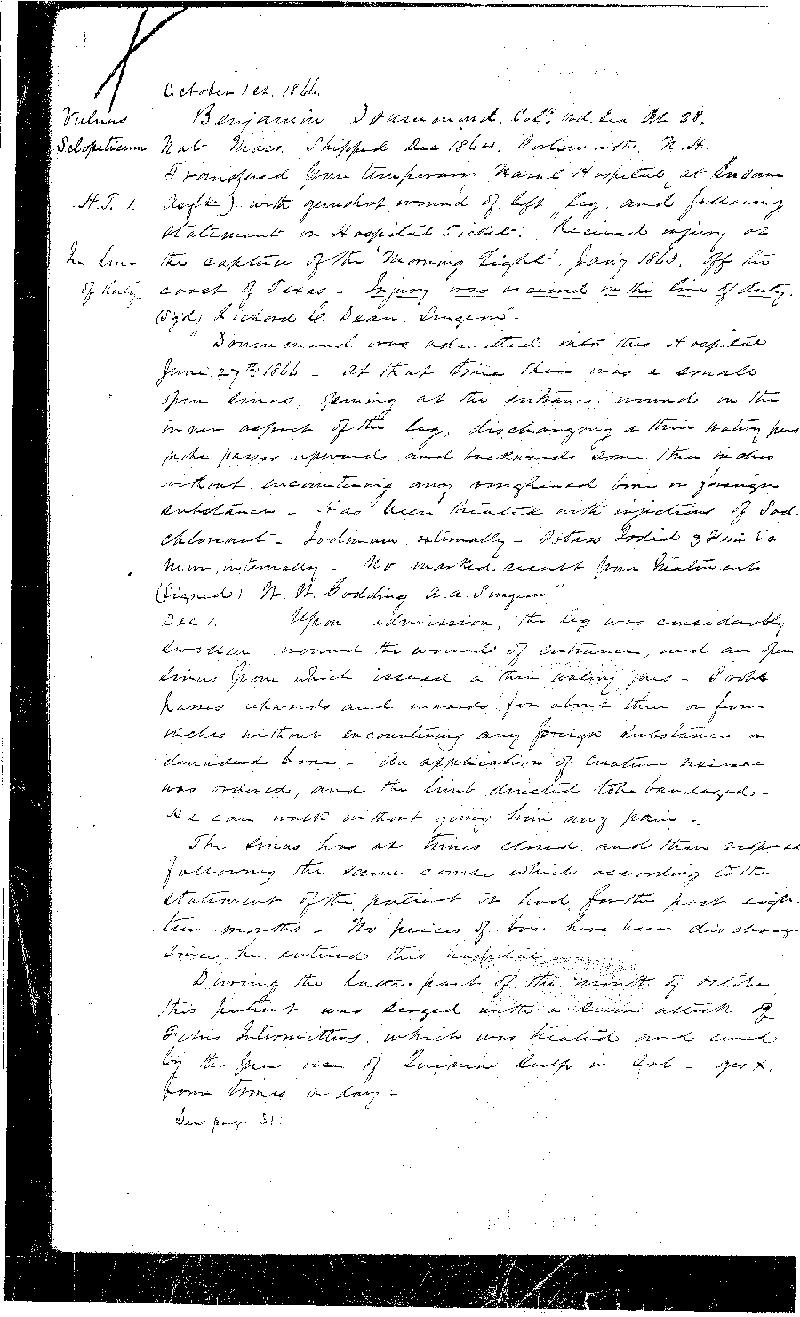 October 1st. 1866.
Vulnus Benjamin Drummond. Cold. Sea. At. 28.
Sclopeticum Nat. Mass. Shipped Dec 1864, Portsmouth, N.H.
Transfered from temporary Naval Hospital, at Insane
H.T. 1. Asylum) with gunshot wound of left leg, and following
statement on Hospital ticket: Received injury at
In line the capture of the "Morning Light", Jan'y 1863. Off the
of Duty coast of Texas - Injury was received in the line of duty.
(Sg'd) Richard C. Dean. Surgeon".
Drummond was admitted into this Hospital
June 27th 1866 - At that time there was a small
open sinus, opening at the entrance wound on the
inner aspect of the leg, discharging a thin watery pus
probe passes upwards and backwards some three inches
without encountering any roughened bone or foreign
substance - Has been treated with injections of Sod.
externally - Potass Iodid &
internally - No marked result from treatment
(Signed) W. W. Godding A. A. Surgeon"
Dec 1. Upon admission, the leg was considerably
swollen around the wound of entrance, and an open
sinus from which issued a thin watery pus - Probe
passes upwards and inwards for about three or four
inches without encountering any foreign substance or
denuded bone - An application of
was ordered, and the limb directed to be bandaged -
He can walk without giving him any pain -
The sinus has at times closed and then
following the same course which according to the
statement of the patient it had for the past eigh-
teen months - No pieces of bone have been discharged
since he entered this hospital
During the latter part of the month of October
this patient was seized with a severe attack of
Febris Intermittens, which was treated and cured
by the free use of Quinine Sulp in Sol - grs X.
four times a day -
See page 31.